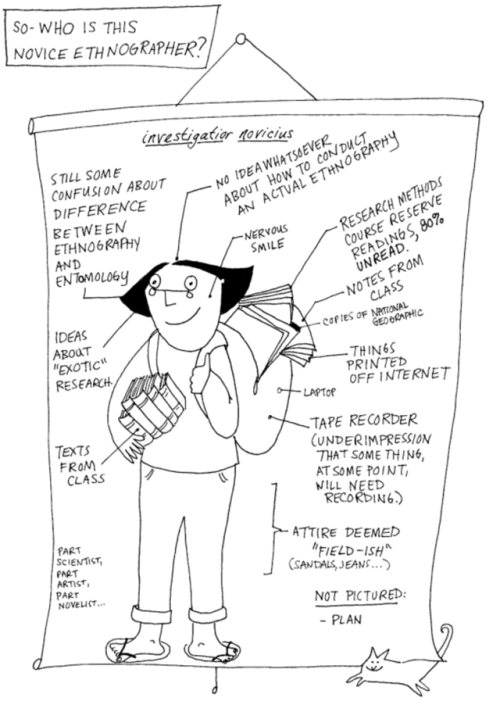 SO-WHO IS THIS
NOVICE ETHNOGRAPHER?
investigatior novicius
STILL SOME
CONFUSION ABOUT
DIFFERENCE
BETWEEN
ETHNOGRAPHY
AND
ENTOMOLOGY
NO IDEA WHATSOEVER
ABOUT HOW TO CONDUCT
AN ACTUAL ETHNOGRAPHY
NERVOUS
SMILE
RESEARCH METHODS
COURSE RESERVE
READINGS, 80%
UNREAD.
NOTES FROM
CLASS
COPIES OF NATIONAL
GEOGRAPHIC
THINGS
PRINTED
OFF INTERNET
LAPTOP
TAPE RECORDER
(UNDER IMPRESSION
THAT SOME THING,
AT SOME POINT,
WILL NEED
RECORDING.)
IDEAS
ABOUT
"EXOTIC"
RESEARCH.
TEXTS
FROM
CLASS
ATTIRE DEEMED
"FIELD-ISH"
(SANDALS, JEANS...)
PART
SCIENTIST,
PART
ARTIST,
PART
NOVELIST...
NOT PICTURED:
- PLAN